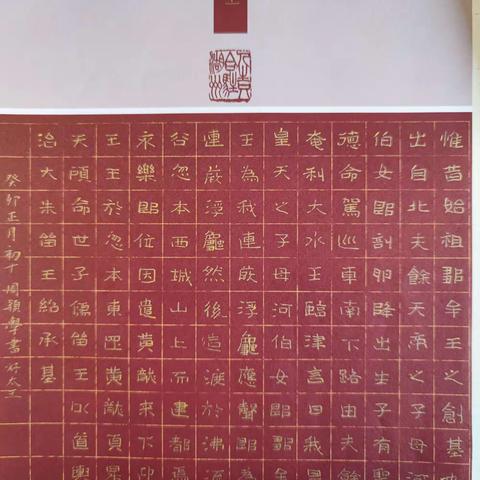 惟昔始祖鄒牟王之創基也
出自北夫餘天帝之子母河
伯女郎剖卵降出生子有聖
德命駕巡車南下路由夫餘
奄利大水王臨津言曰我是
皇天之子母河伯女郎鄒牟
王為我連葭浮龜應聲即為
連葭浮龜然後造渡於沸流
谷忽本西城山上而建都焉
永樂即位因遣黃龍來下迎
王王於忽本東罡黃龍頁昇
天顧命世子儒留王以道輿
治大朱留王紹承基
癸卯正月初十周穎學書好太王